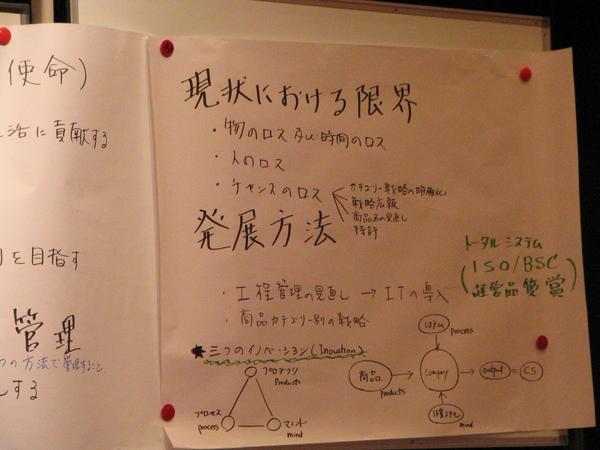 使命)
活に貢献する
を目指す
管理
の方法で管理すること
する
現状における限界
・物のロス及び時間のロス
・人のロス
・チャンスのロス
カテゴリー戦略の明確化
戦略広報
商品の見直し
特許
発展方法
トータルシステム
(ISO/BSC
経営品質賞)
・工程管理の見直し→ITの導入
・商品カテゴリー別の戦略
★三つのイノベーション(Inoustion)
プロダクツ
products
プロセス
process
マインド
mind
システム
process
商品
products
Company
output = CS
mind